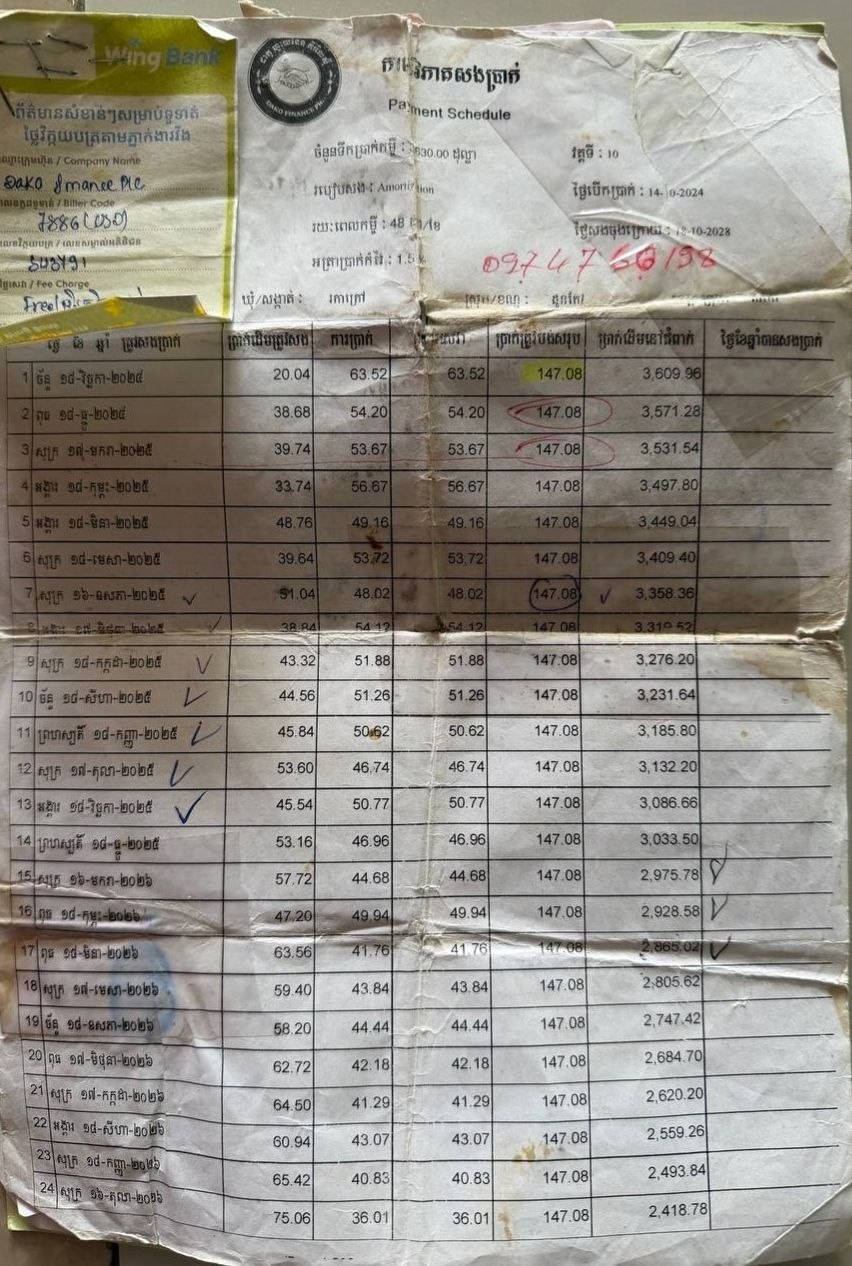 Wing Bank
ព័ត៌មានសំខាន់ៗសម្រាប់ទូទាត់
ថ្លៃវិក្កយបត្រតាមភ្នាក់ងារវីង
ឈ្មោះក្រុមហ៊ុន / Company Name
DAKO finance PLC
/ Biller Code
7886 (USD)
543791
ថ្លៃសេវា / Fee Charge
Free
DAKO FINANCE Plc.
សងប្រាក់
Payment Schedule
ចំនួនទឹកប្រាក់កម្ចី : 630.00 ដុល្លា
វគ្គទី : 10
របៀបសង : Amortization
ថ្ងៃបើកប្រាក់ : 14-10-2024
រយៈពេលកម្ចី : 48
ថ្ងៃសងចុងក្រោយ : 18-10-2028
អត្រាការប្រាក់ : 1.5
ឃុំ/សង្កាត់ : រកាក្រៅ
ស្រុក/ខណ្ឌ : ដូនកែវ
ថ្ងៃ ខែ ឆ្នាំ ត្រូវសងប្រាក់ ប្រាក់ដើមត្រូវសង ការប្រាក់ ប្រាក់ត្រូវបង់សរុប ប្រាក់ដើមនៅជំពាក់ ថ្ងៃខែឆ្នាំបានសងប្រាក់
1 ច័ន្ទ ១៨-វិច្ឆិកា-២០២៤ 20.04 63.52 63.52 147.08 3,609.96
2 ពុធ ១៨-ធ្នូ-២០២៤ 38.68 54.20 54.20 147.08 3,571.28
3 សុក្រ ១៧-មករា-២០២៥ 39.74 53.67 53.67 147.08 3,531.54
4 អង្គារ ១៨-កុម្ភះ-២០២៥ 33.74 56.67 56.67 147.08 3,497.80
5 អង្គារ ១៨-មិនា-២០២៥ 48.76 49.16 49.16 147.08 3,449.04
6 សុក្រ ១៨-មេសា-២០២៥ 39.64 53.72 53.72 147.08 3,409.40
7 សុក្រ ១៦-ឧសភា-២០២៥ 51.04 48.02 48.02 147.08 3,358.36
8 អង្គារ ១៧-មិថុនា-២០២៥ 38.84 54.12 54.12 147.08 3,319.52
9 សុក្រ ១៨-កក្កដា-២០២៥ 43.32 51.88 51.88 147.08 3,276.20
10 ច័ន្ទ ១៨-សីហា-២០២៥ 44.56 51.26 51.26 147.08 3,231.64
11 ព្រហស្បតិ៍ ១៨-កញ្ញា-២០២៥ 45.84 50.62 50.62 147.08 3,185.80
12 សុក្រ ១៧-តុលា-២០២៥ 53.60 46.74 46.74 147.08 3,132.20
13 អង្គារ ១៨-វិច្ឆិកា-២០២៥ 45.54 50.77 50.77 147.08 3,086.66
14 ព្រហស្បតិ៍ ១៨-ធ្នូ-២០២៥ 53.16 46.96 46.96 147.08 3,033.50
15 សុក្រ ១៦-មករា-២០២៦ 57.72 44.68 44.68 147.08 2,975.78
16 ពុធ ១៨-កុម្ភះ-២០២៦ 47.20 49.94 49.94 147.08 2,928.58
17 ពុធ ១៨-មិនា-២០២៦ 63.56 41.76 41.76 147.08 2,865.02
18 សុក្រ ១៧-មេសា-២០២៦ 59.40 43.84 43.84 147.08 2,805.62
19 ច័ន្ទ ១៨-ឧសភា-២០២៦ 58.20 44.44 44.44 147.08 2,747.42
20 ពុធ ១៧-មិថុនា-២០២៦ 62.72 42.18 42.18 147.08 2,684.70
21 សុក្រ ១៧-កក្កដា-២០២៦ 64.50 41.29 41.29 147.08 2,620.20
22 អង្គារ ១៨-សីហា-២០២៦ 60.94 43.07 43.07 147.08 2,559.26
23 សុក្រ ១៨-កញ្ញា-២០២៦ 65.42 40.83 40.83 147.08 2,493.84
24 សុក្រ ១៦-តុលា-២០២៦ 75.06 36.01 36.01 147.08 2,418.78